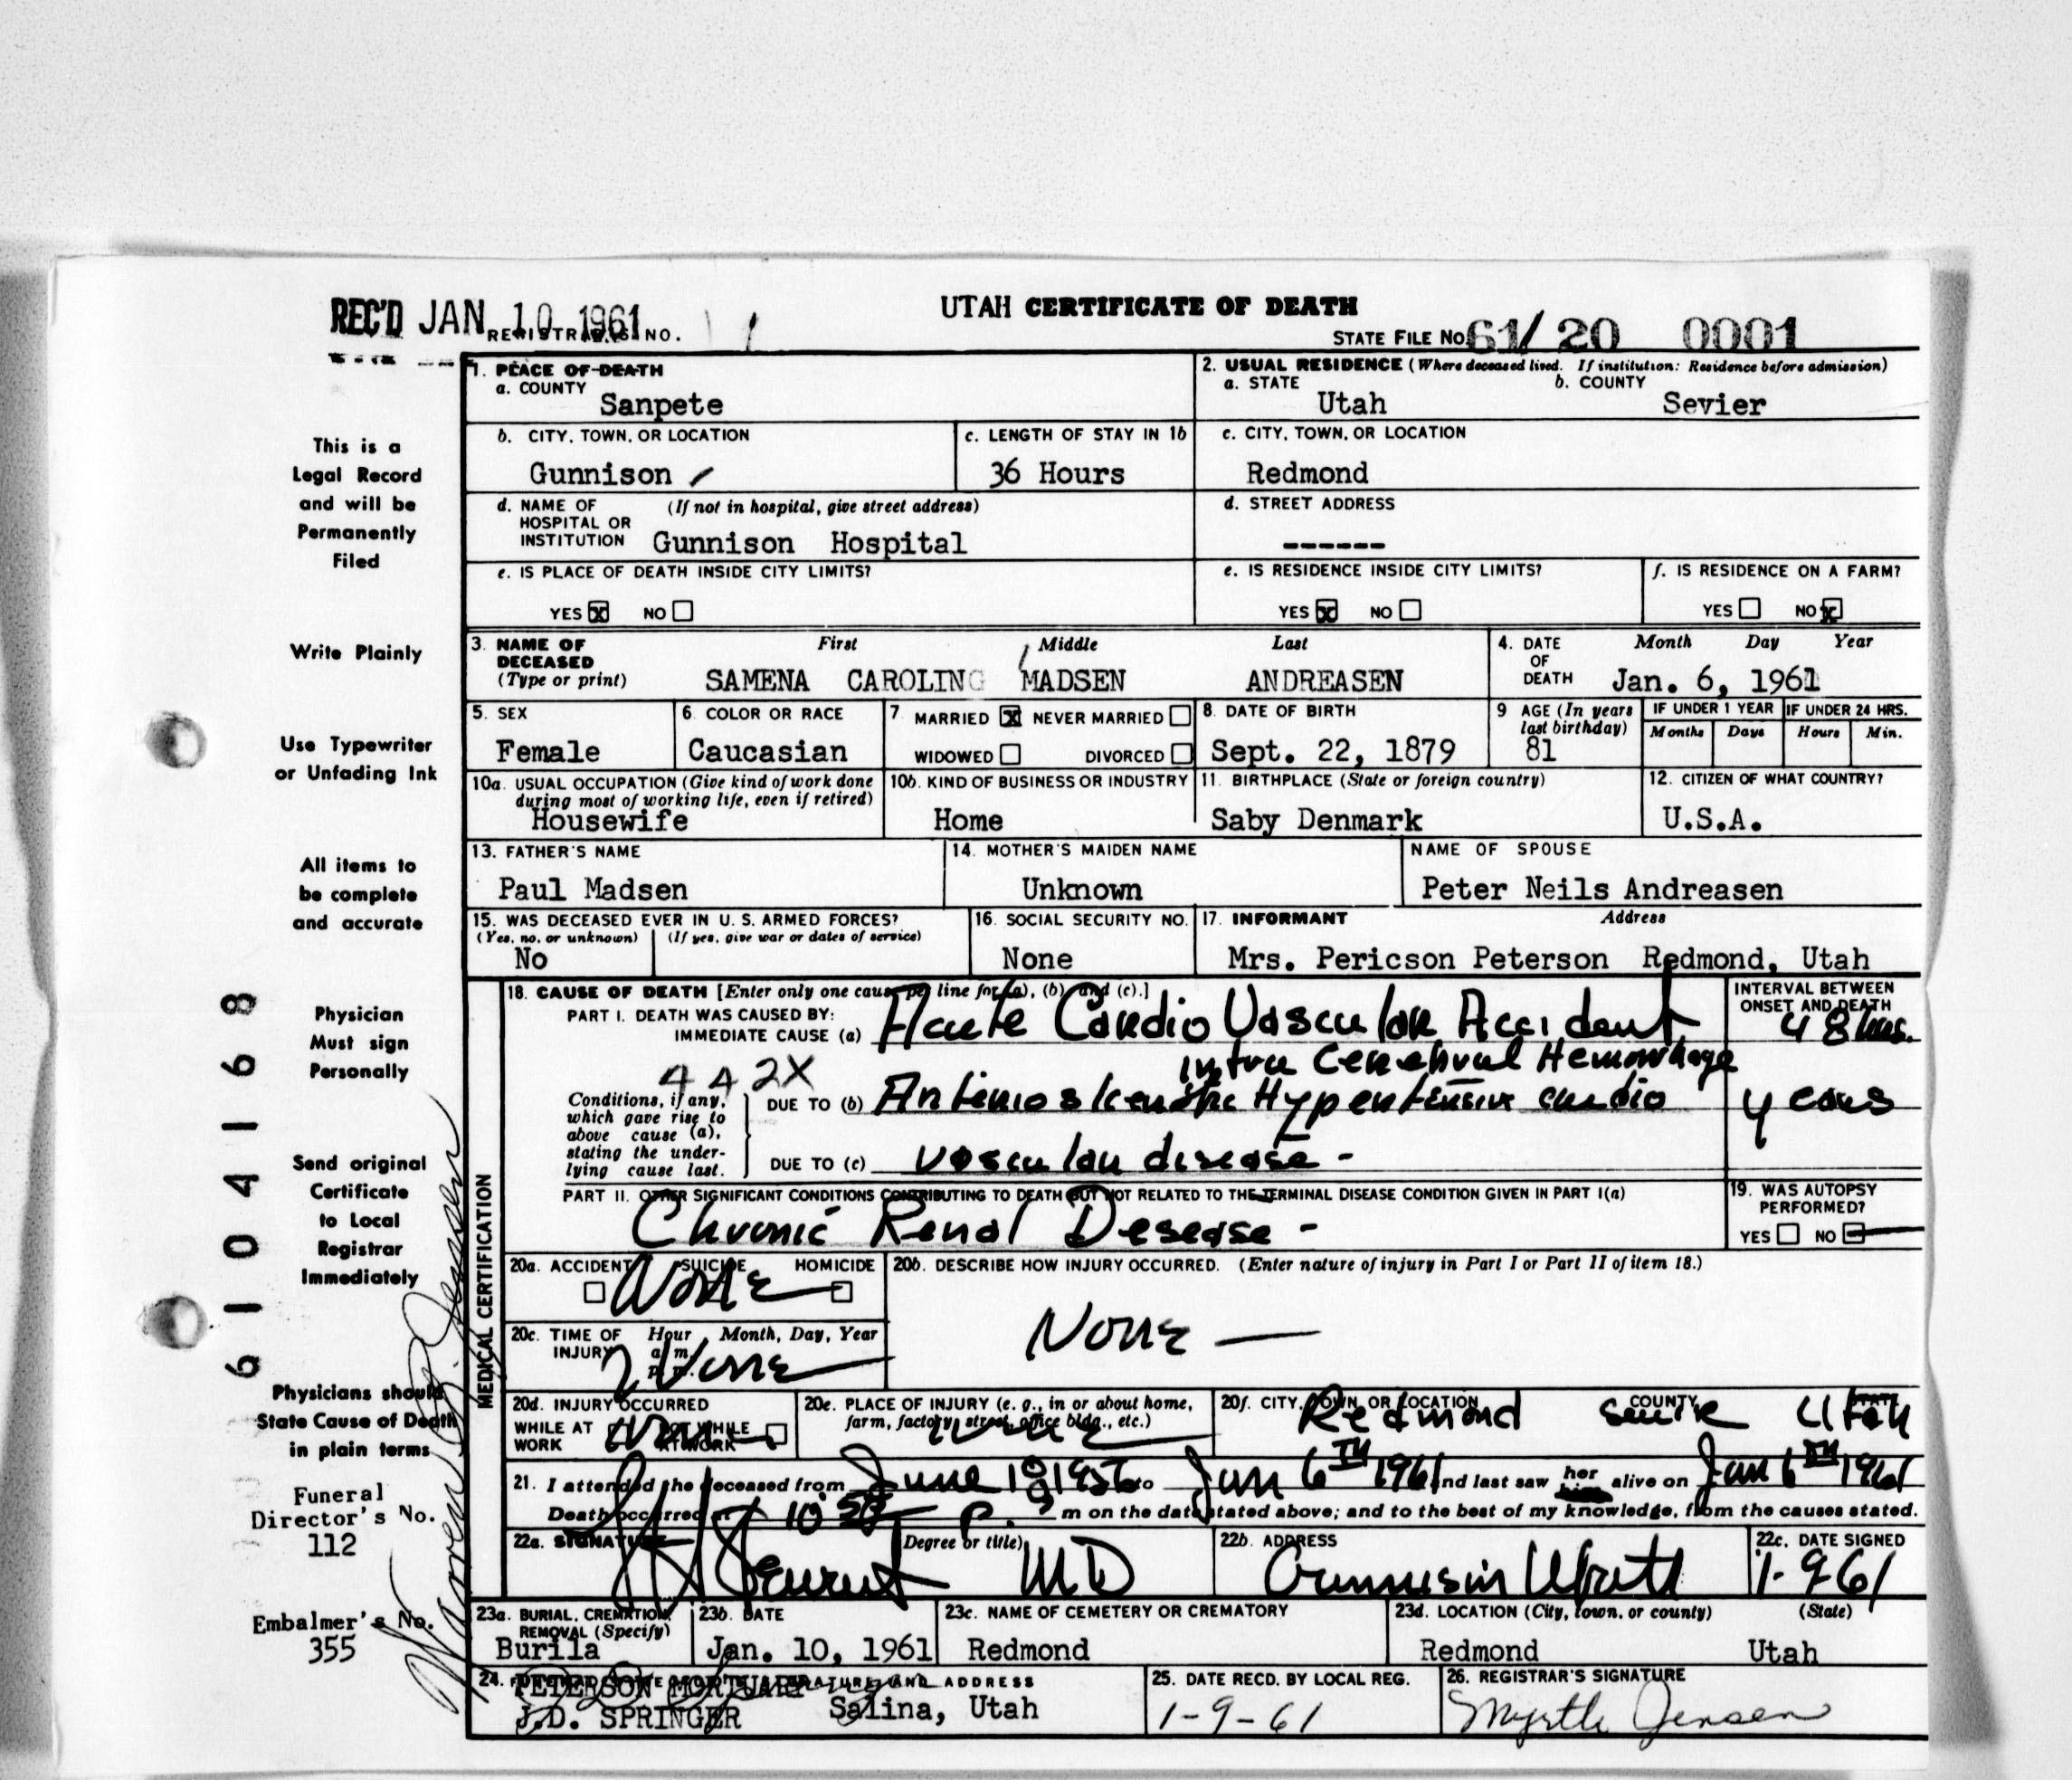 REC'D JAN 10 1961
UTAH CERTIFICATE OF DEATH
REGISTRAR'S NO. 1
STATE FILE NO. 61/20 0001
1. PLACE OF DEATH
a. COUNTY
Sanpete
2. USUAL RESIDENCE (Where deceased lived. If institution: Residence before admission)
a. STATE
Utah
b. COUNTY
Sevier
b. CITY, TOWN, OR LOCATION
Gunnison
c. LENGTH OF STAY IN 1b
36 Hours
c. CITY, TOWN, OR LOCATION
Redmond
d. NAME OF (If not in hospital, give street address)
HOSPITAL OR
INSTITUTION Gunnison Hospital
d. STREET ADDRESS
------
e. IS PLACE OF DEATH INSIDE CITY LIMITS?
YES X NO
e. IS RESIDENCE INSIDE CITY LIMITS?
YES X NO
f. IS RESIDENCE ON A FARM?
YES NO X
3. NAME OF DECEASED (Type or print)
First Middle Last
SAMENA CAROLING MADSEN ANDREASEN
4. DATE OF DEATH
Month Day Year
Jan. 6, 1961
5. SEX
Female
6. COLOR OR RACE
Caucasian
7. MARRIED X NEVER MARRIED
WIDOWED DIVORCED
8. DATE OF BIRTH
Sept. 22, 1879
9. AGE (In years last birthday)
81
IF UNDER 1 YEAR
Months Days
IF UNDER 24 HRS.
Hours Min.
10a. USUAL OCCUPATION (Give kind of work done
during most of working life, even if retired)
Housewife
10b. KIND OF BUSINESS OR INDUSTRY
Home
11. BIRTHPLACE (State or foreign country)
Saby Denmark
12. CITIZEN OF WHAT COUNTRY?
U.S.A.
13. FATHER'S NAME
Paul Madsen
14. MOTHER'S MAIDEN NAME
Unknown
NAME OF SPOUSE
Peter Neils Andreasen
15. WAS DECEASED EVER IN U. S. ARMED FORCES?
(Yes, no, or unknown) (If yes, give war or dates of service)
No
16. SOCIAL SECURITY NO.
None
17. INFORMANT Address
Mrs. Pericson Peterson Redmond, Utah
MEDICAL CERTIFICATION
18. CAUSE OF DEATH [Enter only one cause per line for (a), (b), and (c).]
PART I. DEATH WAS CAUSED BY:
IMMEDIATE CAUSE (a) Acute Cardio Vascular Accident
Intra Cerebral Hemorrhage
442X
Conditions, if any,
which gave rise to
above cause (a),
stating the under-
lying cause last.
DUE TO (b) Arteriosklerotic Hypertensive cardio
DUE TO (c) vascular disease -
INTERVAL BETWEEN
ONSET AND DEATH
48 hrs.
years
PART II. OTHER SIGNIFICANT CONDITIONS CONTRIBUTING TO DEATH BUT NOT RELATED TO THE TERMINAL DISEASE CONDITION GIVEN IN PART I(a)
Chronic Renal Desease -
19. WAS AUTOPSY
PERFORMED?
YES NO
20a. ACCIDENT SUICIDE HOMICIDE
None
20b. DESCRIBE HOW INJURY OCCURRED. (Enter nature of injury in Part I or Part II of item 18.)
None —
20c. TIME OF INJURY
Hour Month, Day, Year
a.m.
p.m.
None
20d. INJURY OCCURRED
WHILE AT WORK NOT WHILE AT WORK
None
20e. PLACE OF INJURY (e. g., in or about home,
farm, factory, street, office bldg., etc.)
None
20f. CITY, TOWN, OR LOCATION COUNTY STATE
Redmond Sevier Utah
21. I attended the deceased from June 18 1956 to Jan 6TH 1961 and last saw her him alive on Jan 6TH 1961
Death occurred at 10 50 P. m on the date stated above; and to the best of my knowledge, from the causes stated.
22a. SIGNATURE (Degree or title)
MD
22b. ADDRESS
Gunnison Utah
22c. DATE SIGNED
1-9-61
23a. BURIAL, CREMATION,
REMOVAL (Specify)
Burila
23b. DATE
Jan. 10, 1961
23c. NAME OF CEMETERY OR CREMATORY
Redmond
23d. LOCATION (City, town, or county) (State)
Redmond Utah
24. FUNERAL DIRECTOR'S SIGNATURE AND ADDRESS
PETERSON MORTUARY
J.D. SPRINGER Salina, Utah
25. DATE RECD. BY LOCAL REG.
1-9-61
26. REGISTRAR'S SIGNATURE
Myrtle Jensen
This is a
Legal Record
and will be
Permanently
Filed
Write Plainly
Use Typewriter
or Unfading Ink
All items to
be complete
and accurate
Physician
Must sign
Personally
Send original
Certificate
to Local
Registrar
Immediately
Physicians should
State Cause of Death
in plain terms
Funeral
Director's No.
112
Embalmer's No.
355
61-04-168
Warren B. Jensen